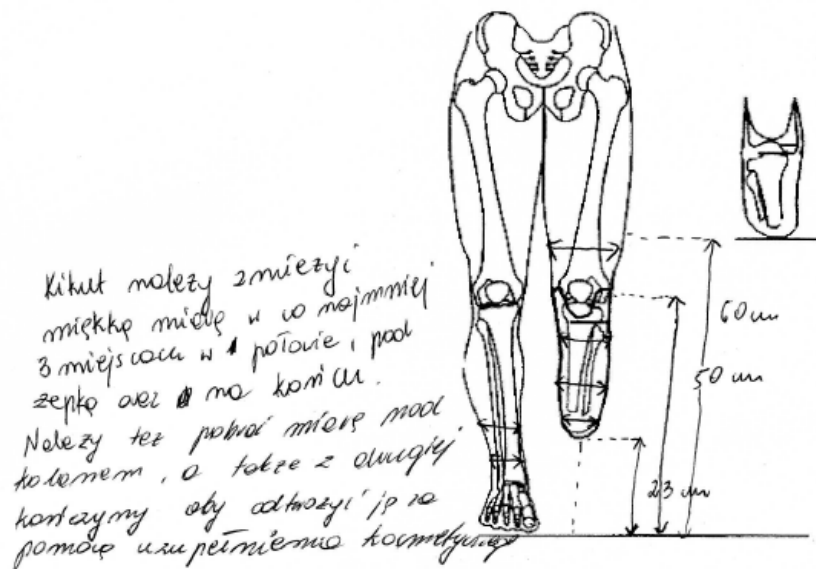 Kikut należy zmierzyć
miękką miarą w co najmniej
3 miejscach w połowie, pod
rzepką oraz na końcu.
Należy też pobrać miarę nad
kolanem, a także z drugiej
kończyny aby odtworzyć ją za
pomocą uzupełnienia kosmetycznego
60 cm
50 cm
23 cm